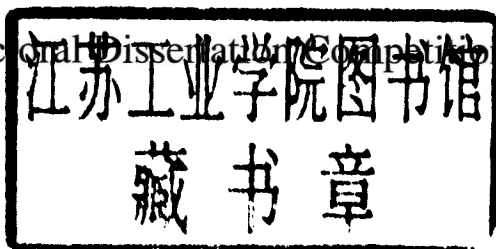 Dissertation Competition
江苏工业学院图书馆
藏书章